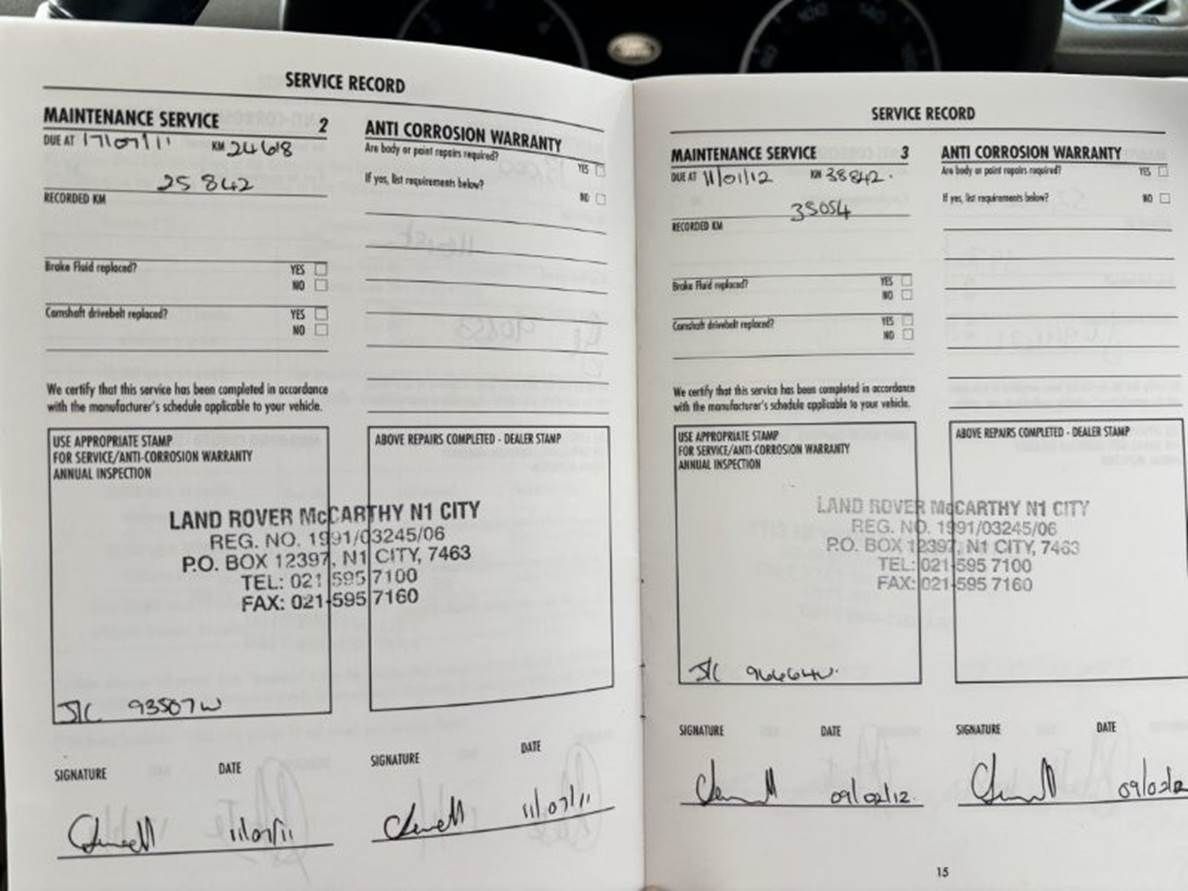 SERVICE RECORD
MAINTENANCE SERVICE 2
DUE AT 17/07/11 KM 24618
25 842
RECORDED KM
Brake Fluid replaced? YES
NO
Camshaft drivebelt replaced? YES
NO
We certify that this service has been completed in accordance
with the manufacturer's schedule applicable to your vehicle.
ANTI CORROSION WARRANTY
Are body or paint repairs required?
YES
If yes, list requirements below?
NO
USE APPROPRIATE STAMP
FOR SERVICE/ANTI-CORROSION WARRANTY
ANNUAL INSPECTION
ABOVE REPAIRS COMPLETED - DEALER STAMP
LAND ROVER McCARTHY N1 CITY
REG. NO. 1991/03245/06
P.O. BOX 12397, N1 CITY, 7463
TEL: 021 595 7100
FAX: 021-595 7160
J/C 93507W
SIGNATURE DATE
11/07/11
SIGNATURE DATE
11/07/11
SERVICE RECORD
MAINTENANCE SERVICE 3
DUE AT 11/01/12 KM 38842.
35054
RECORDED KM
Brake Fluid replaced? YES
NO
Camshaft drivebelt replaced? YES
NO
We certify that this service has been completed in accordance
with the manufacturer's schedule applicable to your vehicle.
ANTI CORROSION WARRANTY
Are body or paint repairs required? YES
If yes, list requirements below? NO
USE APPROPRIATE STAMP
FOR SERVICE/ANTI-CORROSION WARRANTY
ANNUAL INSPECTION
ABOVE REPAIRS COMPLETED - DEALER STAMP
LAND ROVER McCARTHY N1 CITY
REG. NO. 1991/03245/06
P.O. BOX 12397, N1 CITY, 7463
TEL: 021-595 7100
FAX: 021-595 7160
J/C 96664W.
SIGNATURE DATE
09/02/12.
SIGNATURE DATE
15